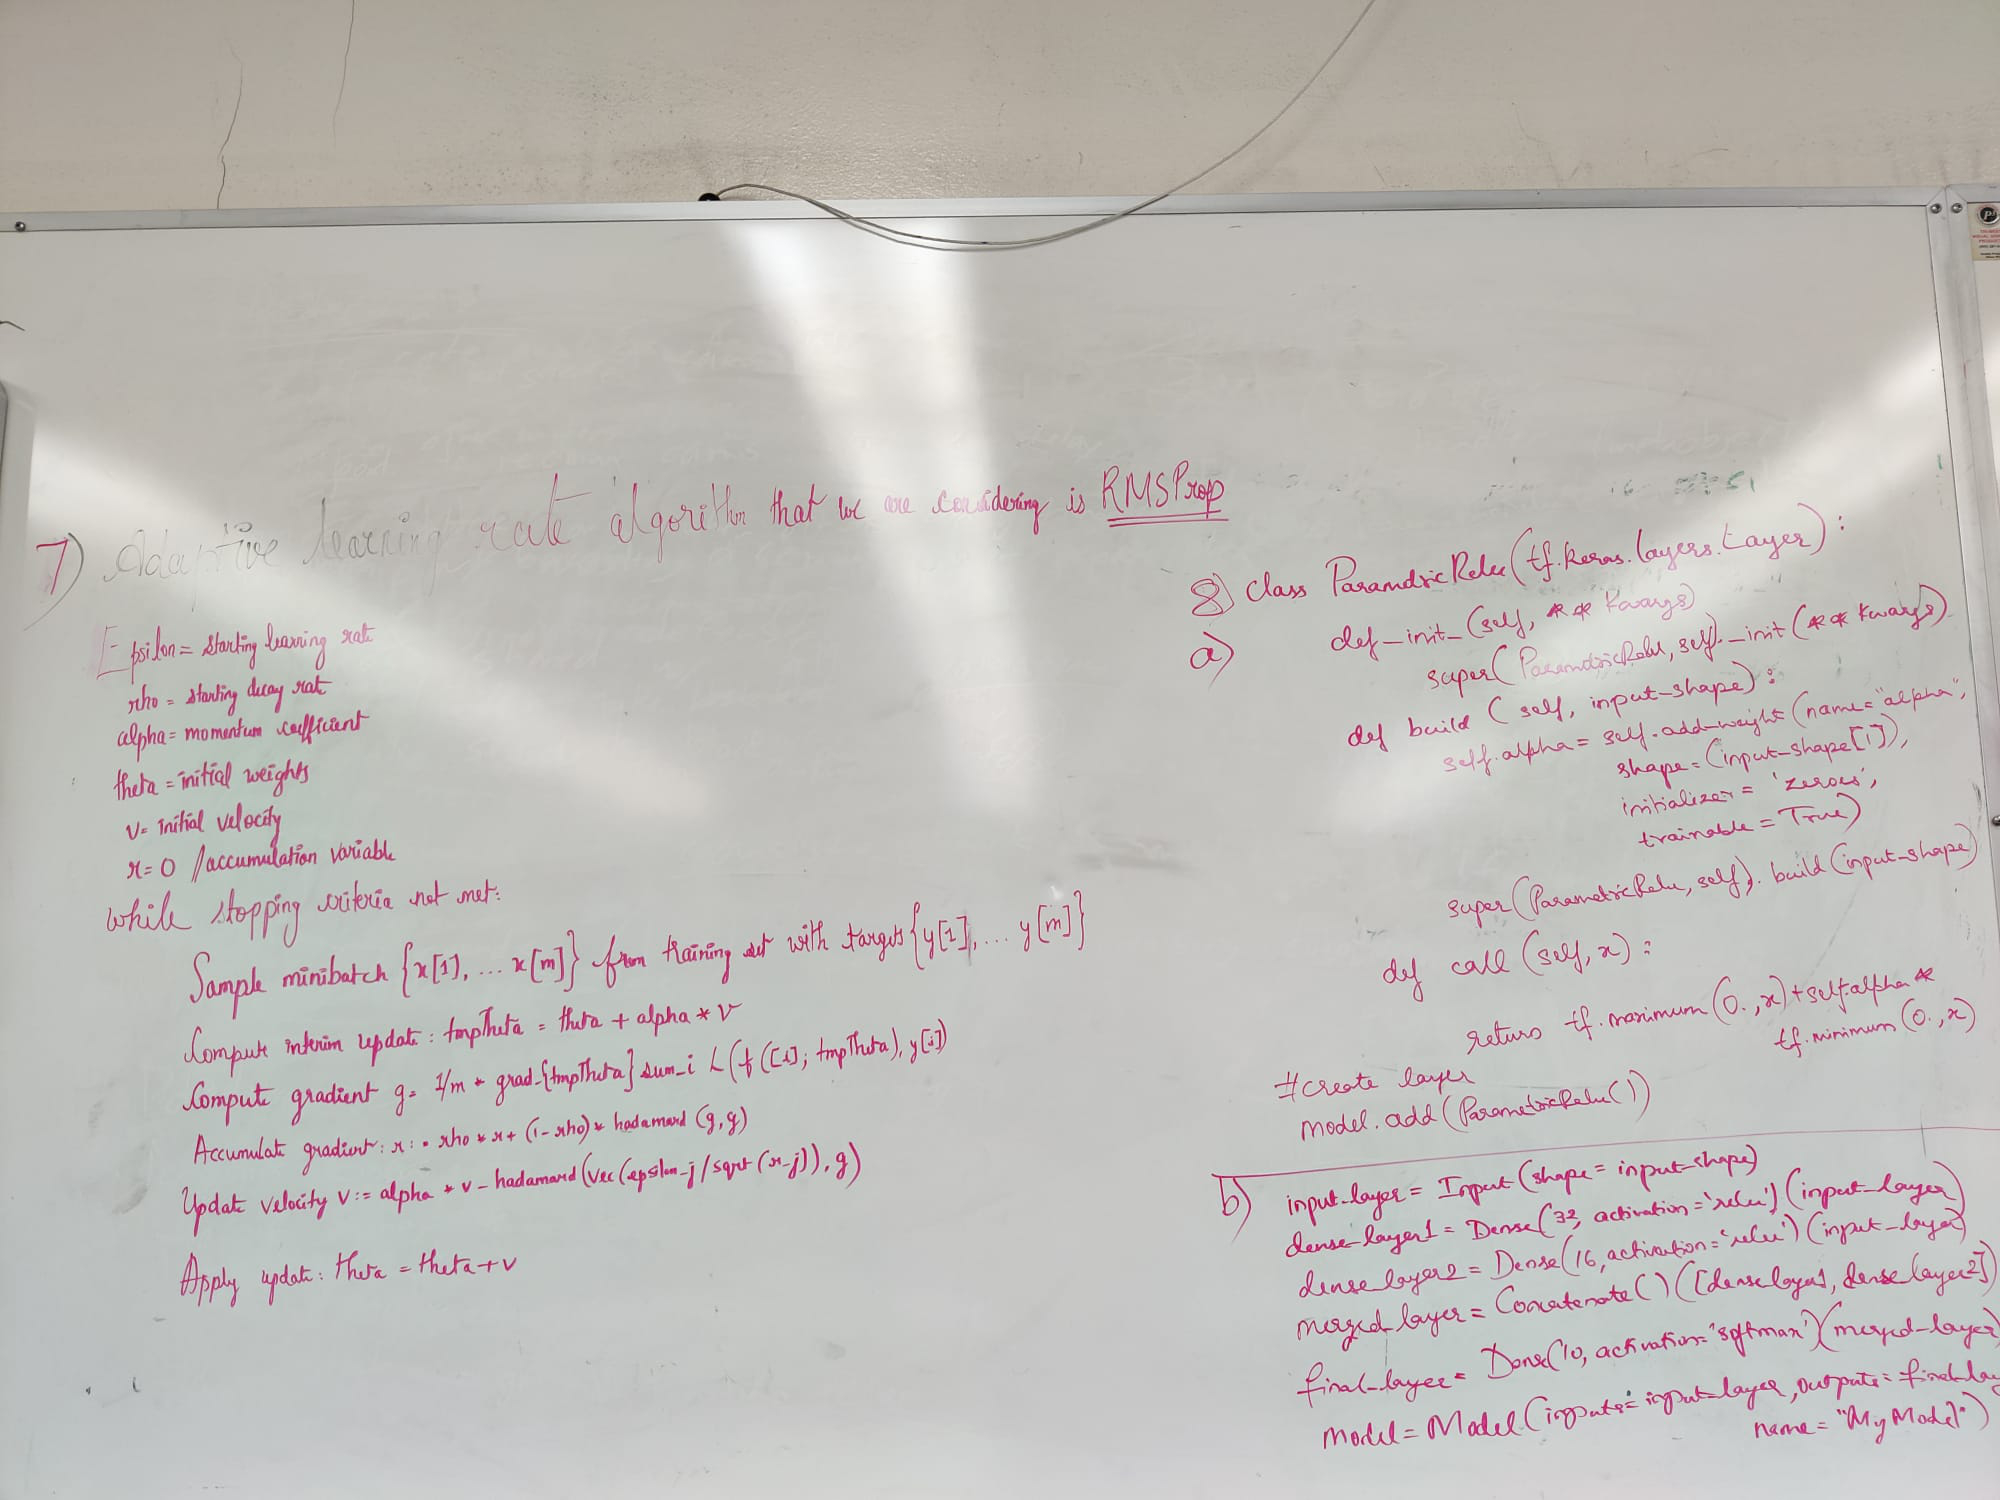 7) Adaptive learning rate algorithm that we are considering is RMSProp
Epsilon = starting learning rate
rho = starting decay rate
alpha = momentum coefficient
theta = initial weights
v = initial velocity
r = 0 /accumulation variable
while stopping criteria not met:
Sample minibatch {x[1], ... x[m]} from training set with targets {y[1], ... y[m]}
Compute interim update: tmpTheta = theta + alpha * v
Compute gradient g = 1/m * grad_{tmpTheta} sum_i L(f([i]; tmpTheta), y[i])
Accumulate gradient: r := rho * r + (1 - rho) * hadamard (g, g)
Update velocity v := alpha * v - hadamard (vec (epsilon_j / sqrt (r_j)), g)
Apply update: theta = theta + v
8) class ParametricRelu (tf.keras.layers.Layer):
a) def _init_ (self, ** kwargs)
super(ParametricRelu, self)._init (** kwargs)
def build (self, input_shape):
self.alpha = self.add_weight (name = "alpha",
shape = (input_shape[1]),
initializer = 'zeroes',
trainable = True)
super(ParametricRelu, self). build (input_shape)
def call (self, x):
return tf.maximum (0., x) + self.alpha *
tf.minimum (0., x)
#create layer
model.add (ParametricRelu())
b) input_layer = Input (shape = input_shape)
dense_layer1 = Dense(32, activation = 'relu') (input_layer)
dense_layer2 = Dense(16, activation = 'relu') (input_layer)
merged_layer = Concatenate() ([dense layer1, dense layer2])
final_layer = Dense(10, activation = 'softmax') (merged_layer)
model = Model (inputs = input_layer, outputs = final_lay
name = "My Model")